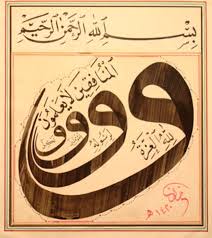 بسم الله الرحمن الرحيم
ولله العزة
ولرسوله
وللمؤمنين
ولكن
المنافقين لا يعلمون